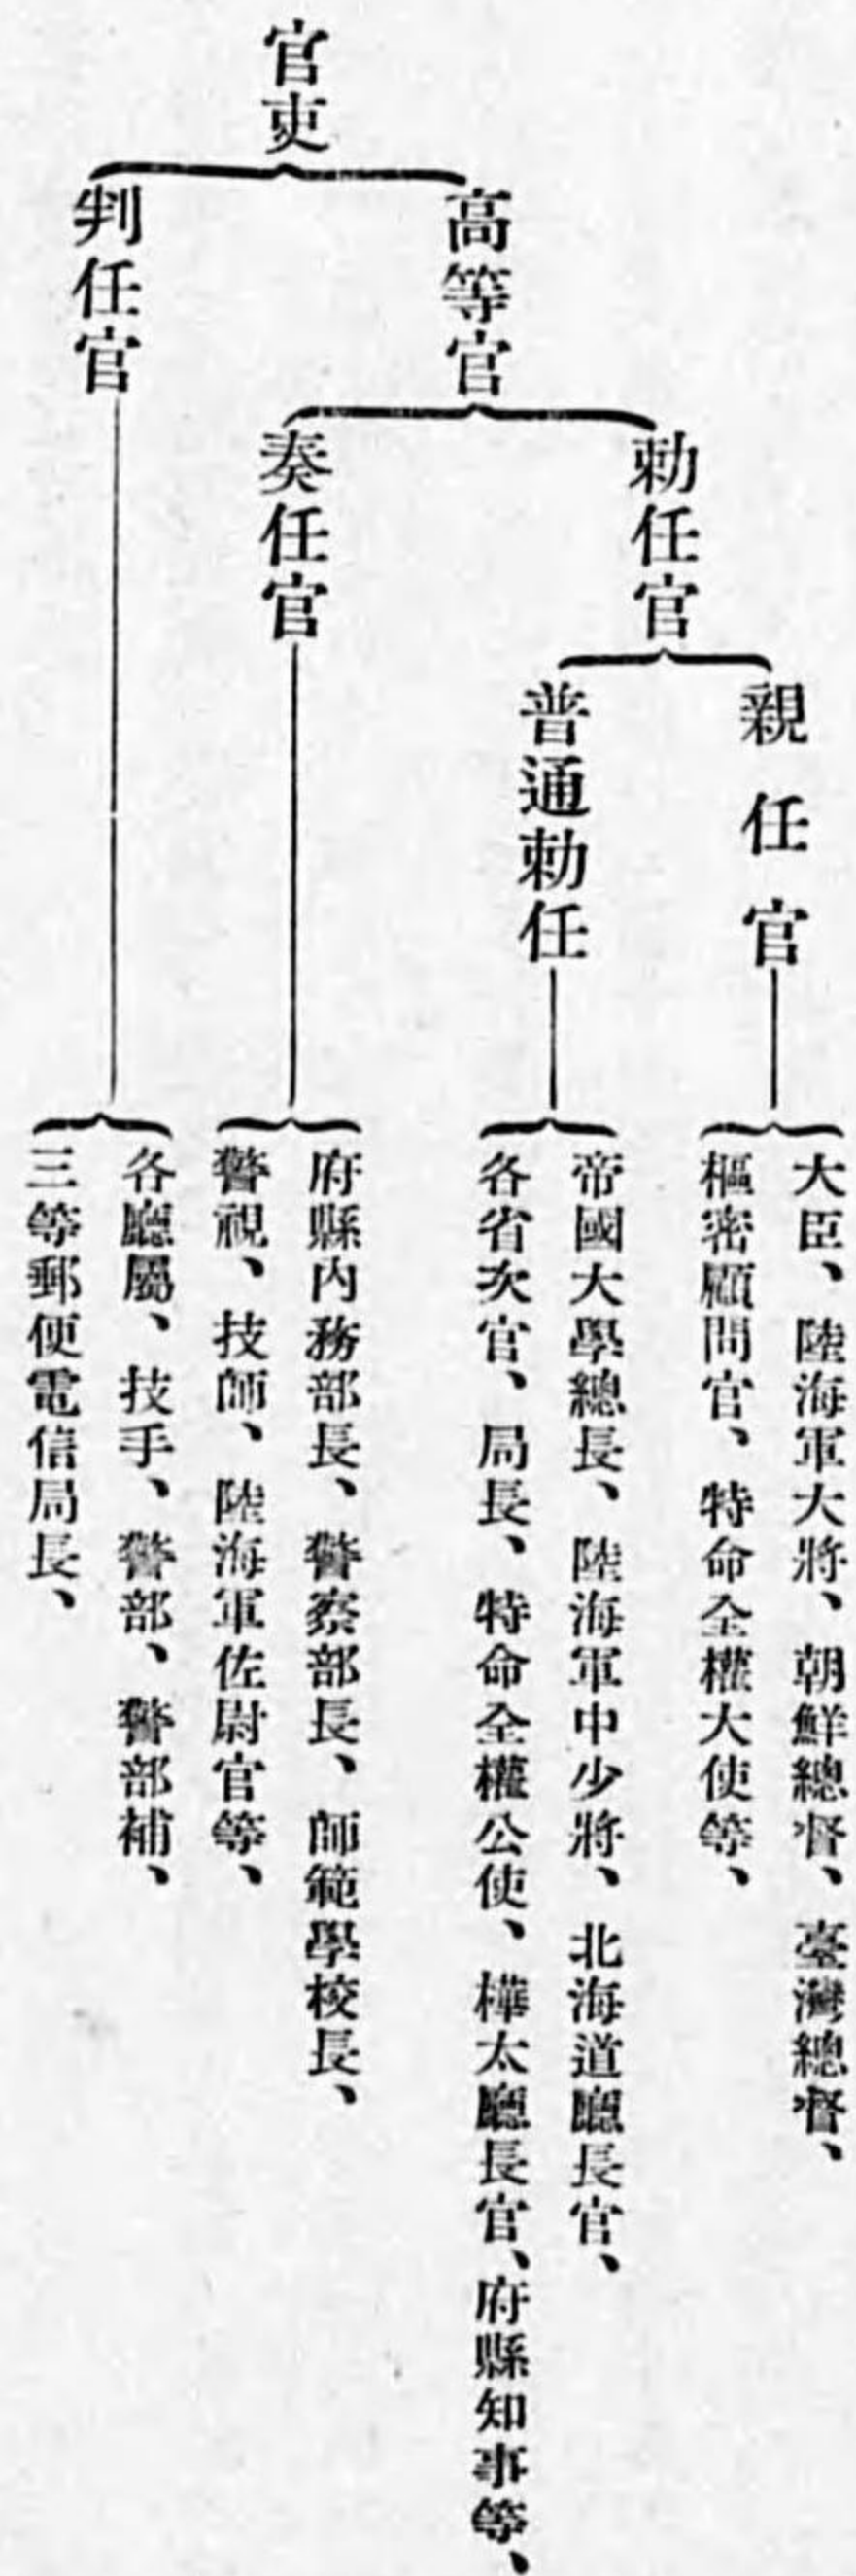 官吏
高等官
勅任官
親任官
大臣、陸海軍大將、朝鮮總督、臺灣總督、
樞密顧問官、特命全權大使等、
普通勅任
帝國大學總長、陸海軍中少將、北海道廳長官、
各省次官、局長、特命全權公使、樺太廳長官、府縣知事等、
奏任官
府縣內務部長、警察部長、師範學校長、
警視、技師、陸海軍佐尉官等、
判任官
各廳屬、技手、警部、警部補、
三等郵便電信局長、